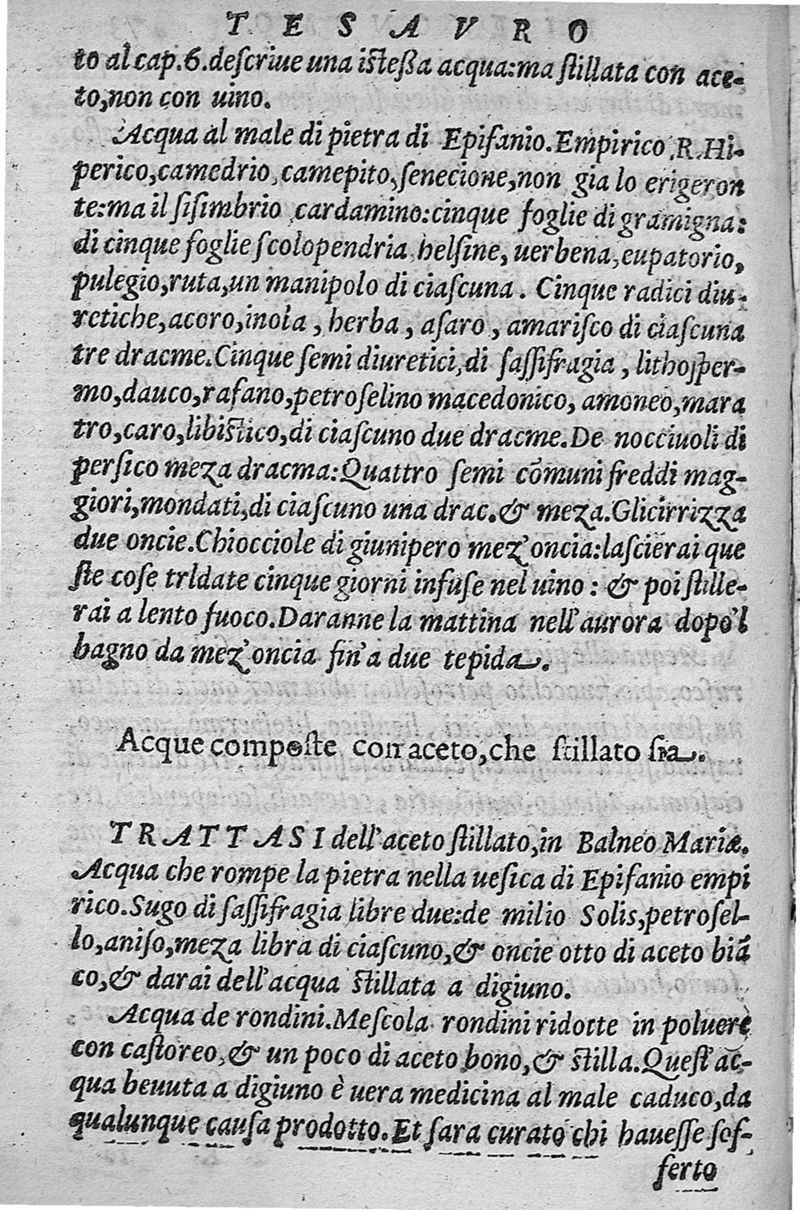 TESAVRO
to al cap.6.descriue una istessa acqua:ma stillata con ace-
to,non con uino.
Acqua al male di pietra di Epifanio.Empirico.R.Hi-
perico,camedrio,camepito,senecione,non gia lo erigeron
te:ma il sisimbrio cardamino:cinque foglie di gramigna:
di cinque foglie scolopendria,helsine, uerbena,eupatorio,
pulegio,ruta,un manipolo di ciascuna. Cinque radici diu-
retiche,acoro,inola, herba, asaro, amarisco di ciascuna
tre dracme.Cinque semi diuretici,di sassifragia, lithosper-
mo,dauco,rafano,petroselino macedonico, amoneo,mara
tro,caro,libistico,di ciascuno due dracme.De nocciuoli di
persico meza dracma:Quattro semi cōmuni freddi mag-
giori,mondati,di ciascuno una drac.& meza.Glicirrizza
due oncie.Chiocciole di giunipero mez'oncia:lascierai que
ste cose trldate cinque giorni infuse nel uino: & poi stille-
rai a lento fuoco.Daranne la mattina nell'aurora dopo'l
bagno da mez'oncia fin'a due tepida.
Acque composte con aceto,che stillato sia.
TRATTASI dell'aceto stillato,in Balneo Mariæ.
Acqua che rompe la pietra nella uesica di Epifanio empi
rico.Sugo di sassifragia libre due:de milio Solis,petrosel-
lo,aniso,meza libra di ciascuno,& oncie otto di aceto biā
co,& darai dell'acqua stillata a digiuno.
Acqua de rondini.Mescola rondini ridotte in poluere
con castoreo,& un poco di aceto bono,& stilla.Quest'ac-
qua beuuta a digiuno è uera medicina al male caduco,da
qualunque causa prodotto.Et sara curato chi hauesse sof-
ferto